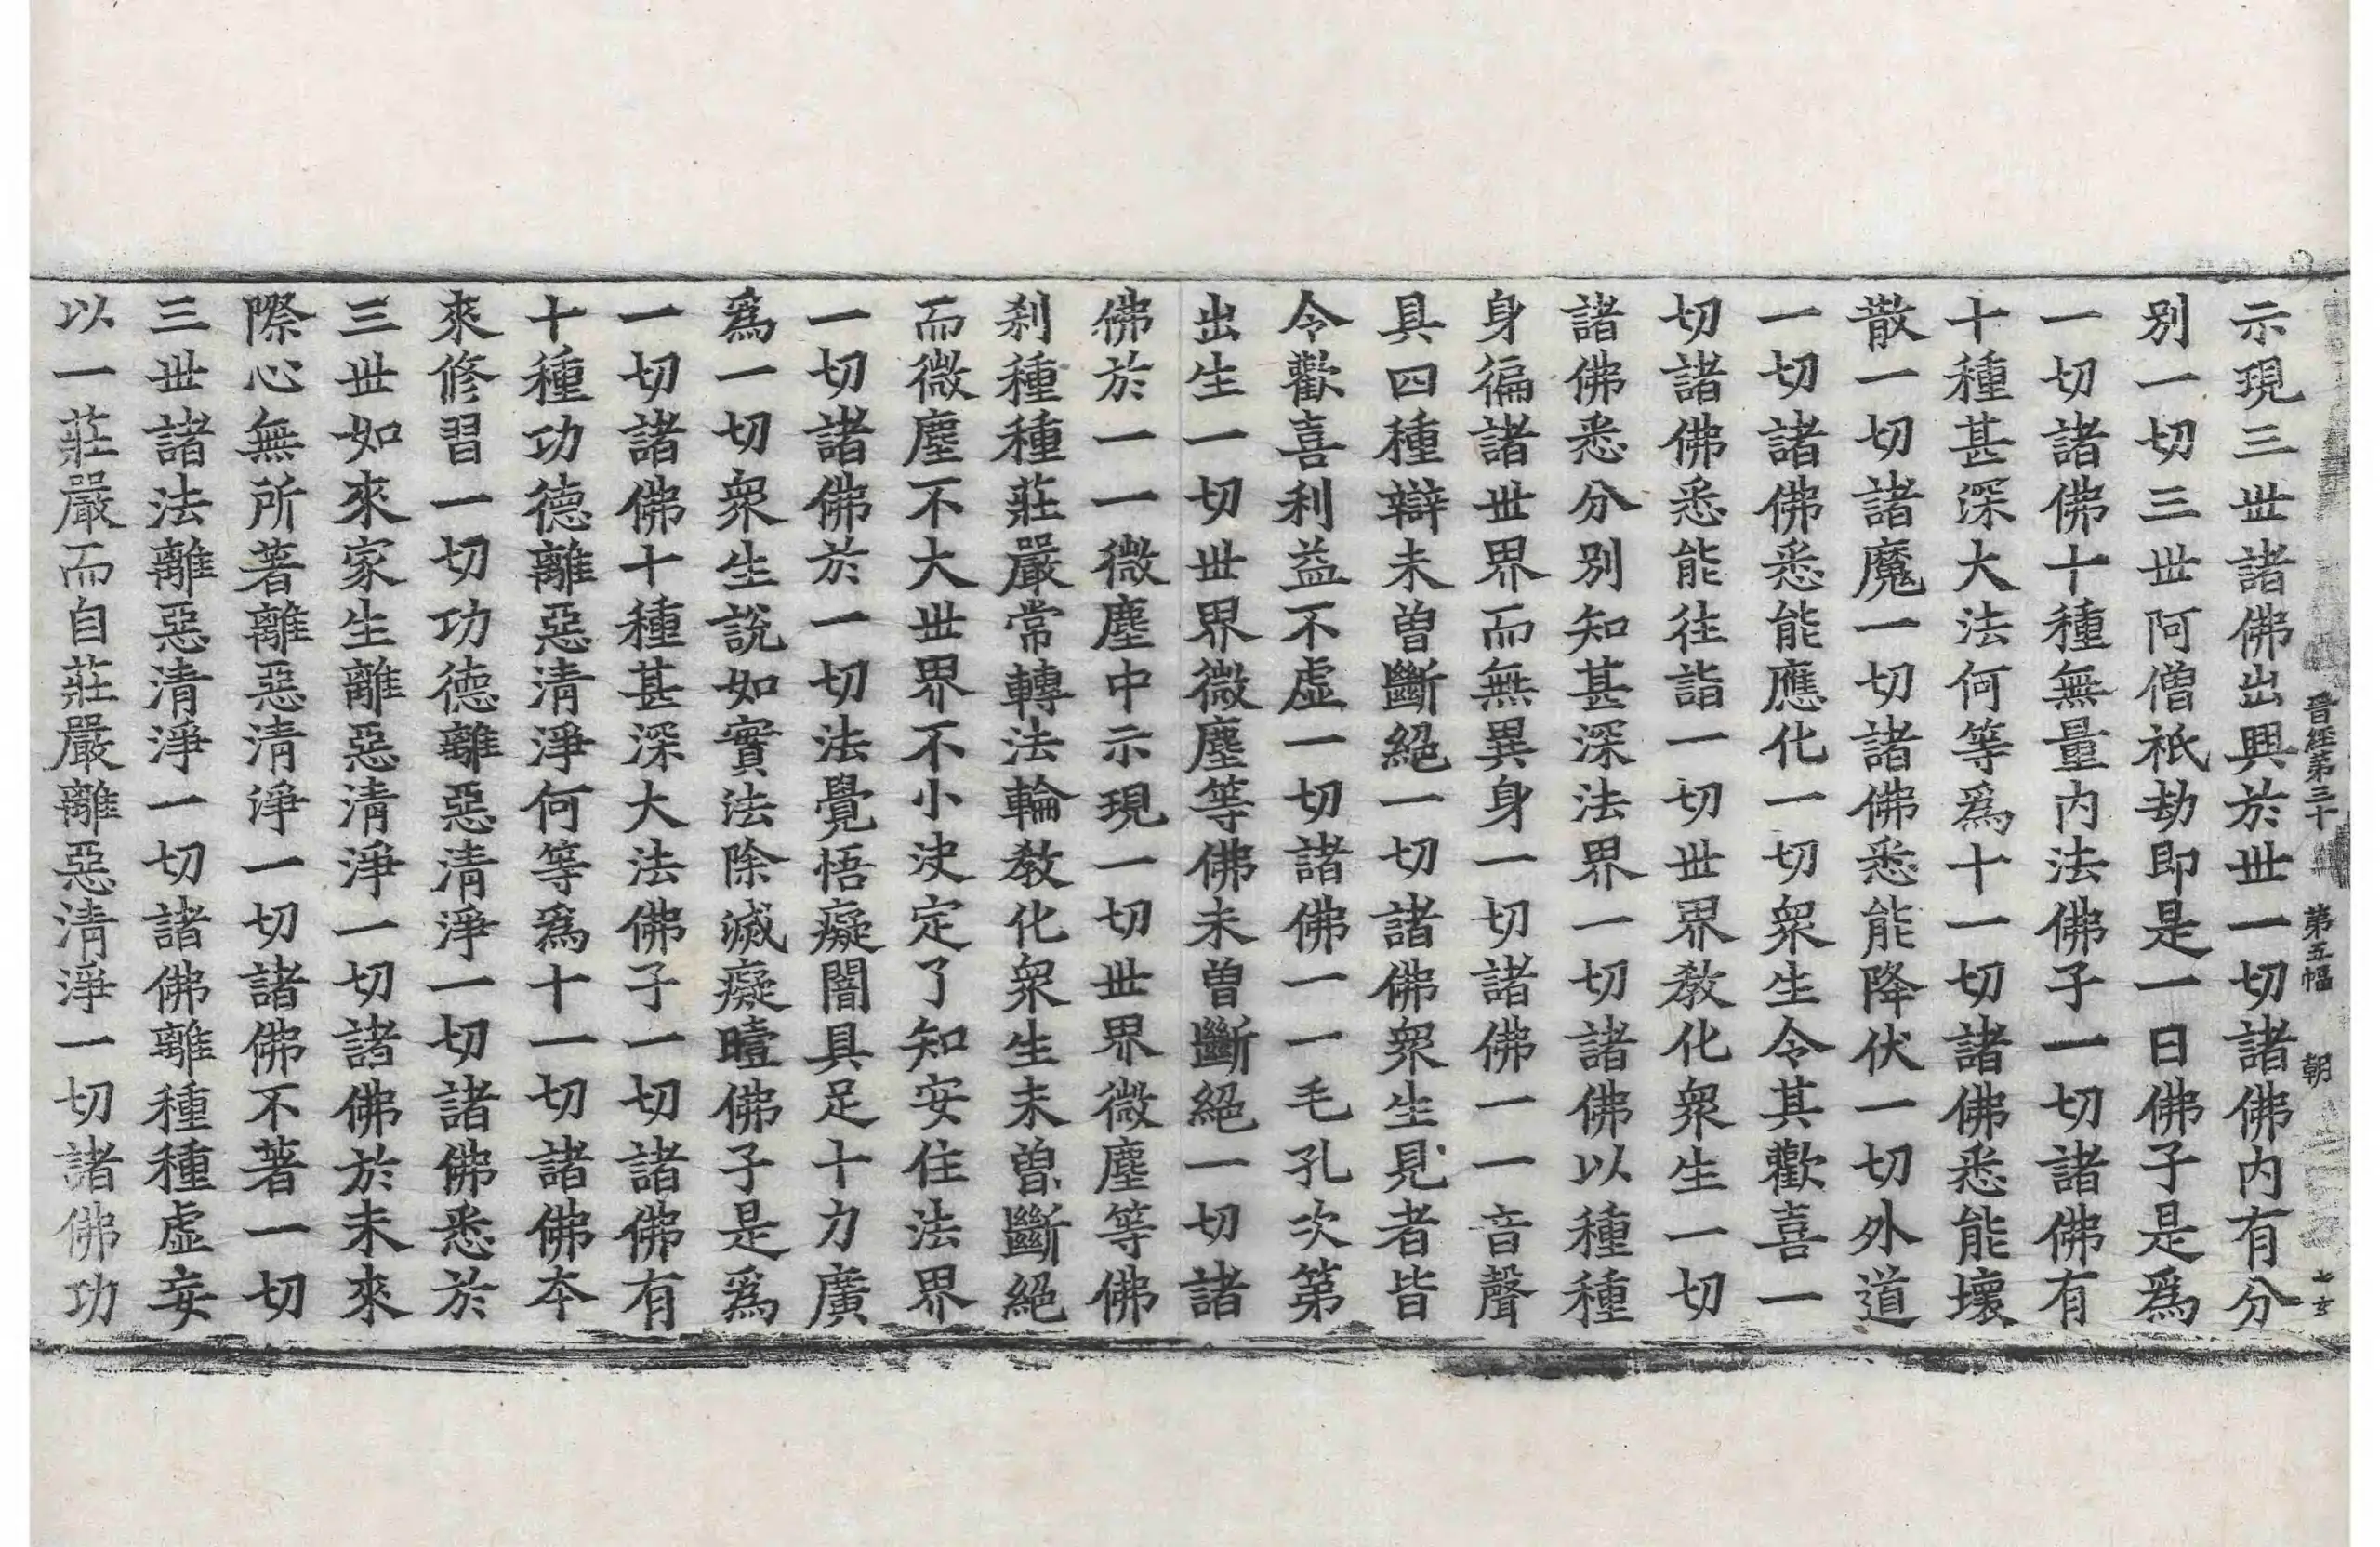 晋経第三十 第五幅 朝
示現三世諸佛出興於世一切諸佛内有分
別一切三世阿僧祇劫即是一日佛子是爲
一切諸佛十種無量内法佛子一切諸佛有
十種甚深大法何等爲十一切諸佛悉能壞
散一切諸魔一切諸佛悉能降伏一切外道
一切諸佛悉能應化一切衆生令其歡喜一
切諸佛悉能往詣一切世界教化衆生一切
諸佛悉分別知甚深法界一切諸佛以種種
身徧諸世界而無異身一切諸佛一一音聲
具四種辯未曽斷絕一切諸佛衆生見者皆
令歡喜利益不虛一切諸佛一一毛孔次第
出生一切世界微塵等佛未曽斷絕一切諸
佛於一一微塵中示現一切世界微塵等佛
刹種種莊嚴常轉法輪教化衆生未曽斷絕
而微塵不大世界不小決定了知安住法界
一切諸佛於一切法覺悟癡闇具足十力廣
爲一切衆生說如實法除滅癡曀佛子是爲
一切諸佛十種甚深大法佛子一切諸佛有
十種功德離惡清淨何等爲十一切諸佛夲
來修習一切功德離惡清淨一切諸佛悉於
三世如來家生離惡清淨一切諸佛於未來
際心無所著離惡清淨一切諸佛不著一切
三世諸法離惡清淨一切諸佛離種種虛妄
以一莊嚴而自莊嚴離惡清淨一切諸佛功